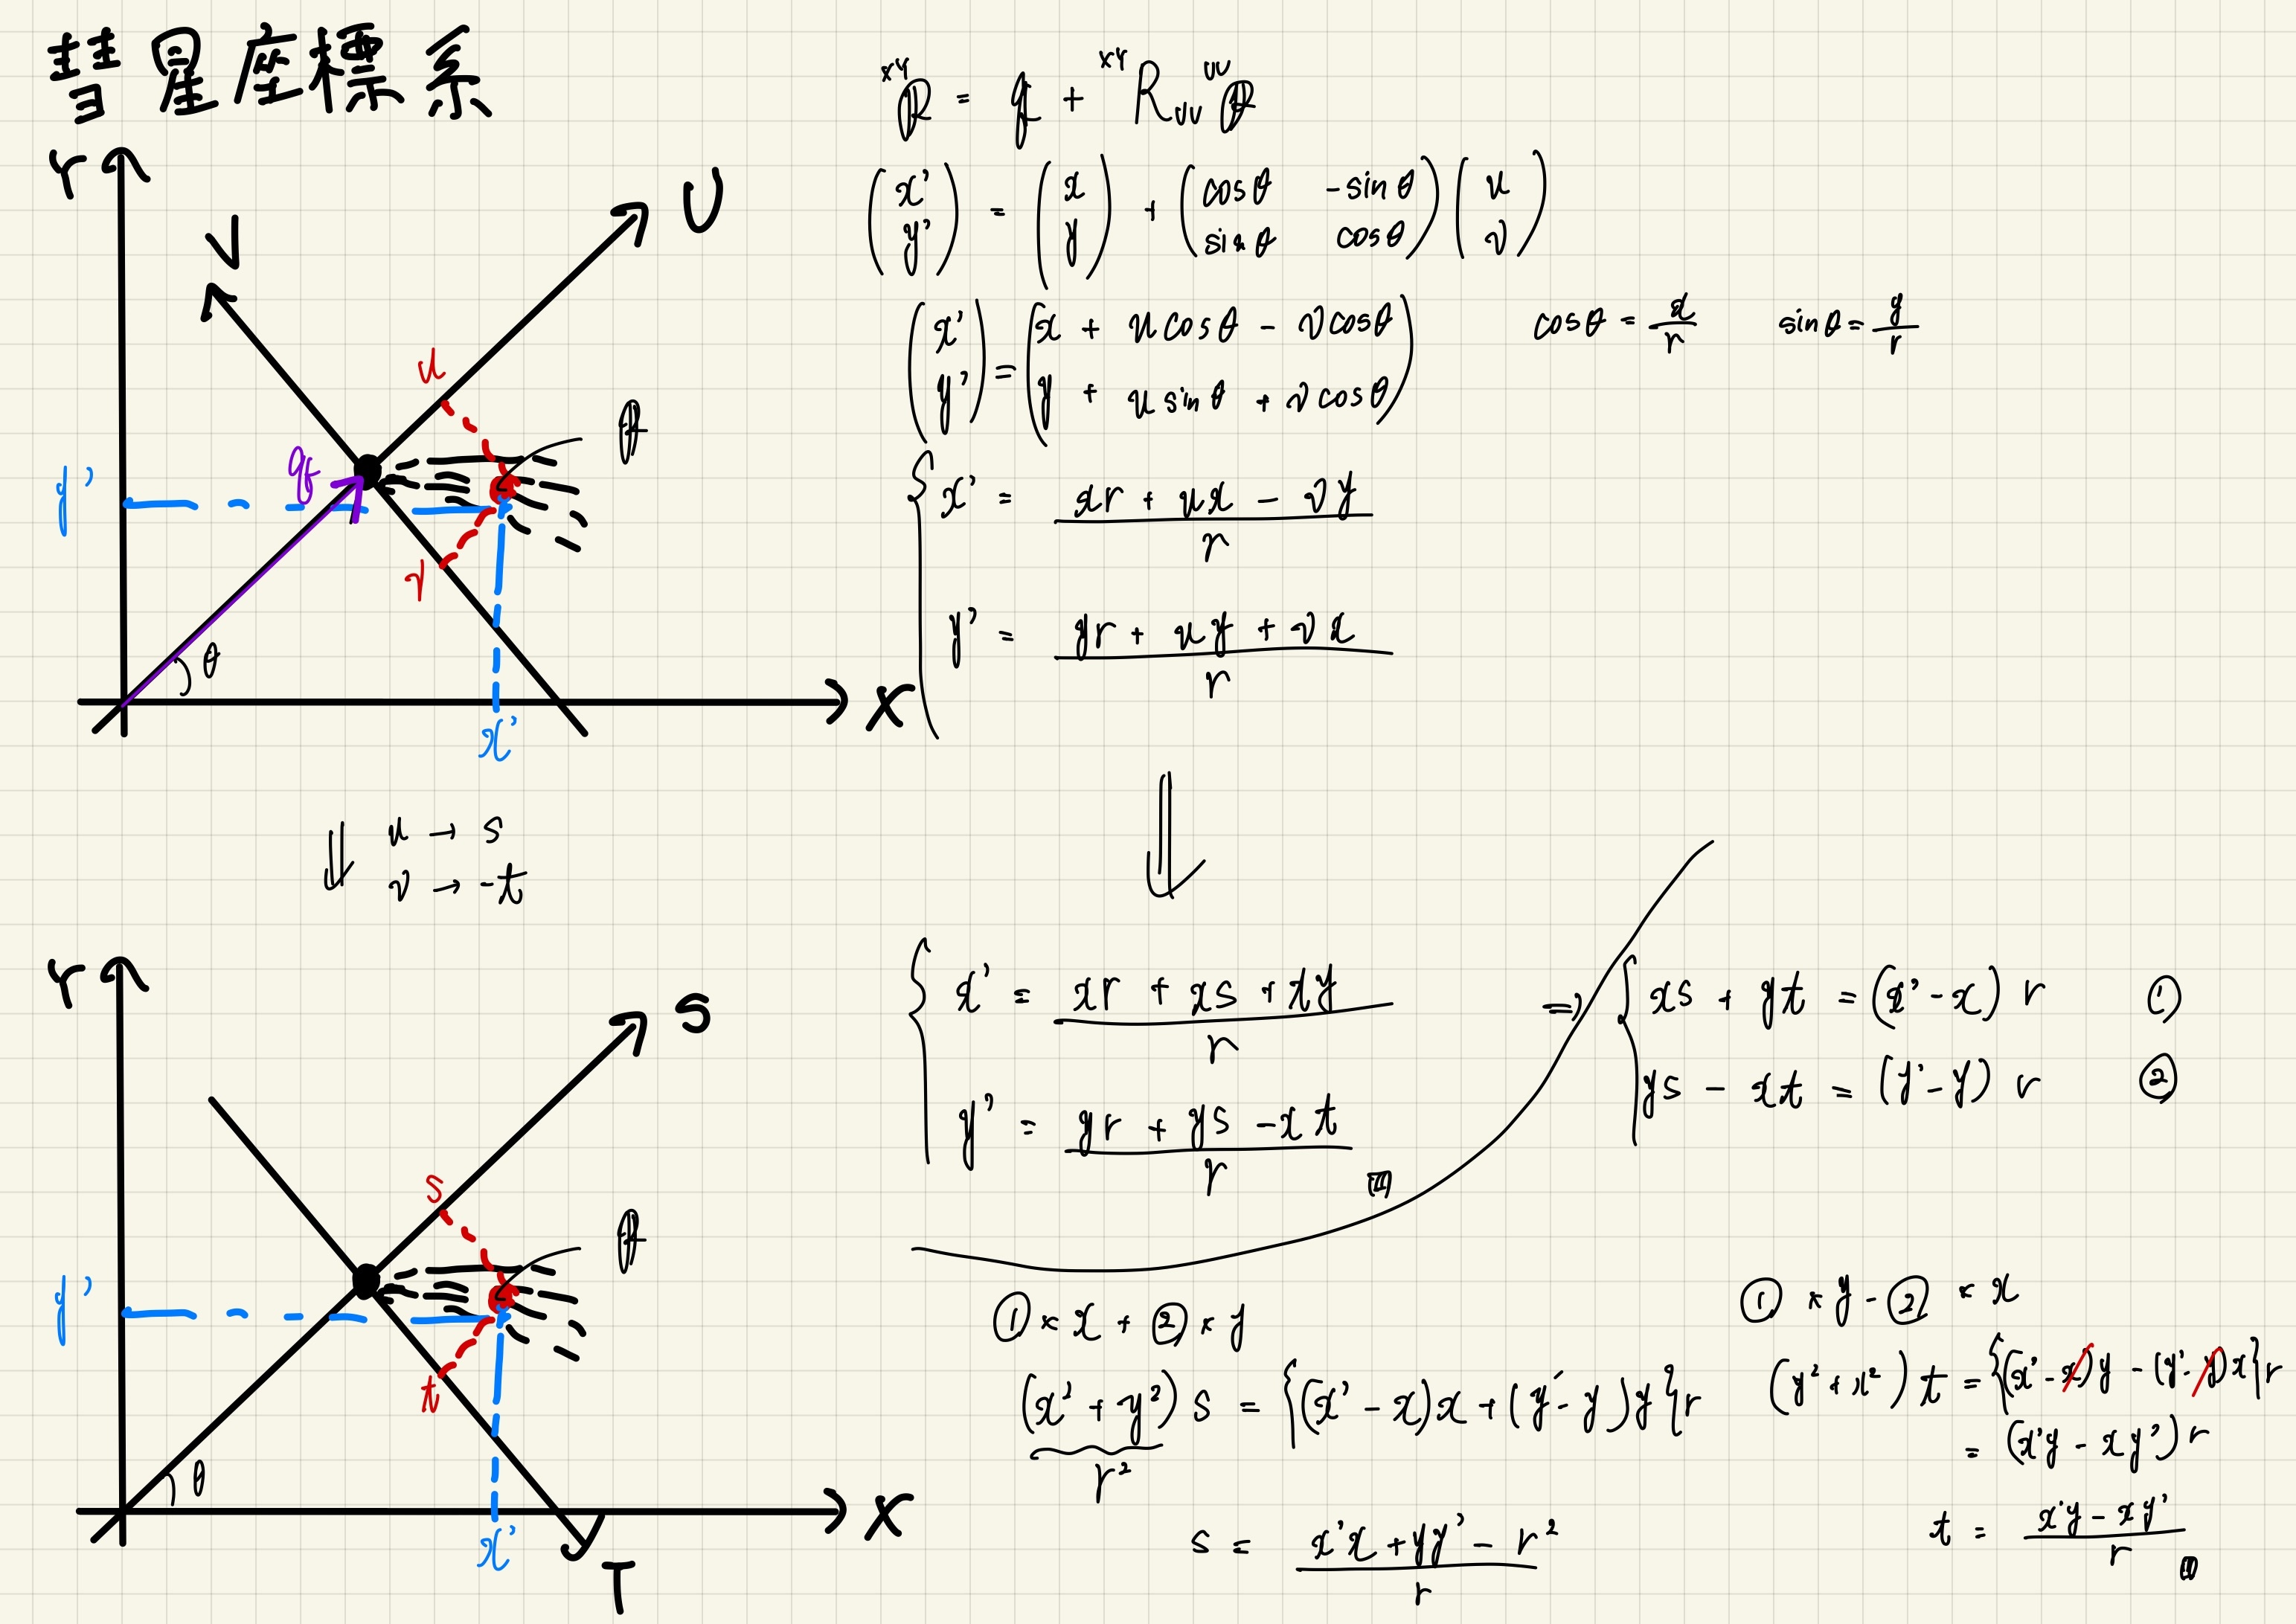 彗星座標系
Y
V
U
u
P
q
y'
v
θ
X
x'
XYP = q + XYR_UV UVP
(x' y') = (x y) + (cosθ -sinθ sinθ cosθ)(u v)
(x' y') = (x + u cosθ - v cosθ y + u sinθ + v cosθ)
cosθ = x/r sinθ = y/r
{ x' = (xr + ux - vy)/r
y' = (yr + uy + vx)/r
⇓ u → s
v → -t
⇓
Y
S
s
P
y'
t
θ
X
x'
T
{ x' = (xr + xs + ty)/r
y' = (yr + ys - xt)/r
⇒ { xs + yt = (x' - x) r ①
ys - xt = (y' - y) r ②
① × x + ② × y
(x² + y²) s = {(x' - x)x + (y' - y)y}r
r²
s = (x'x + yy' - r²)/r
① × y - ② × x
(y² + x²) t = {(x' - x)y - (y' - y)x}r
= (x'y - xy') r
t = (x'y - xy')/r